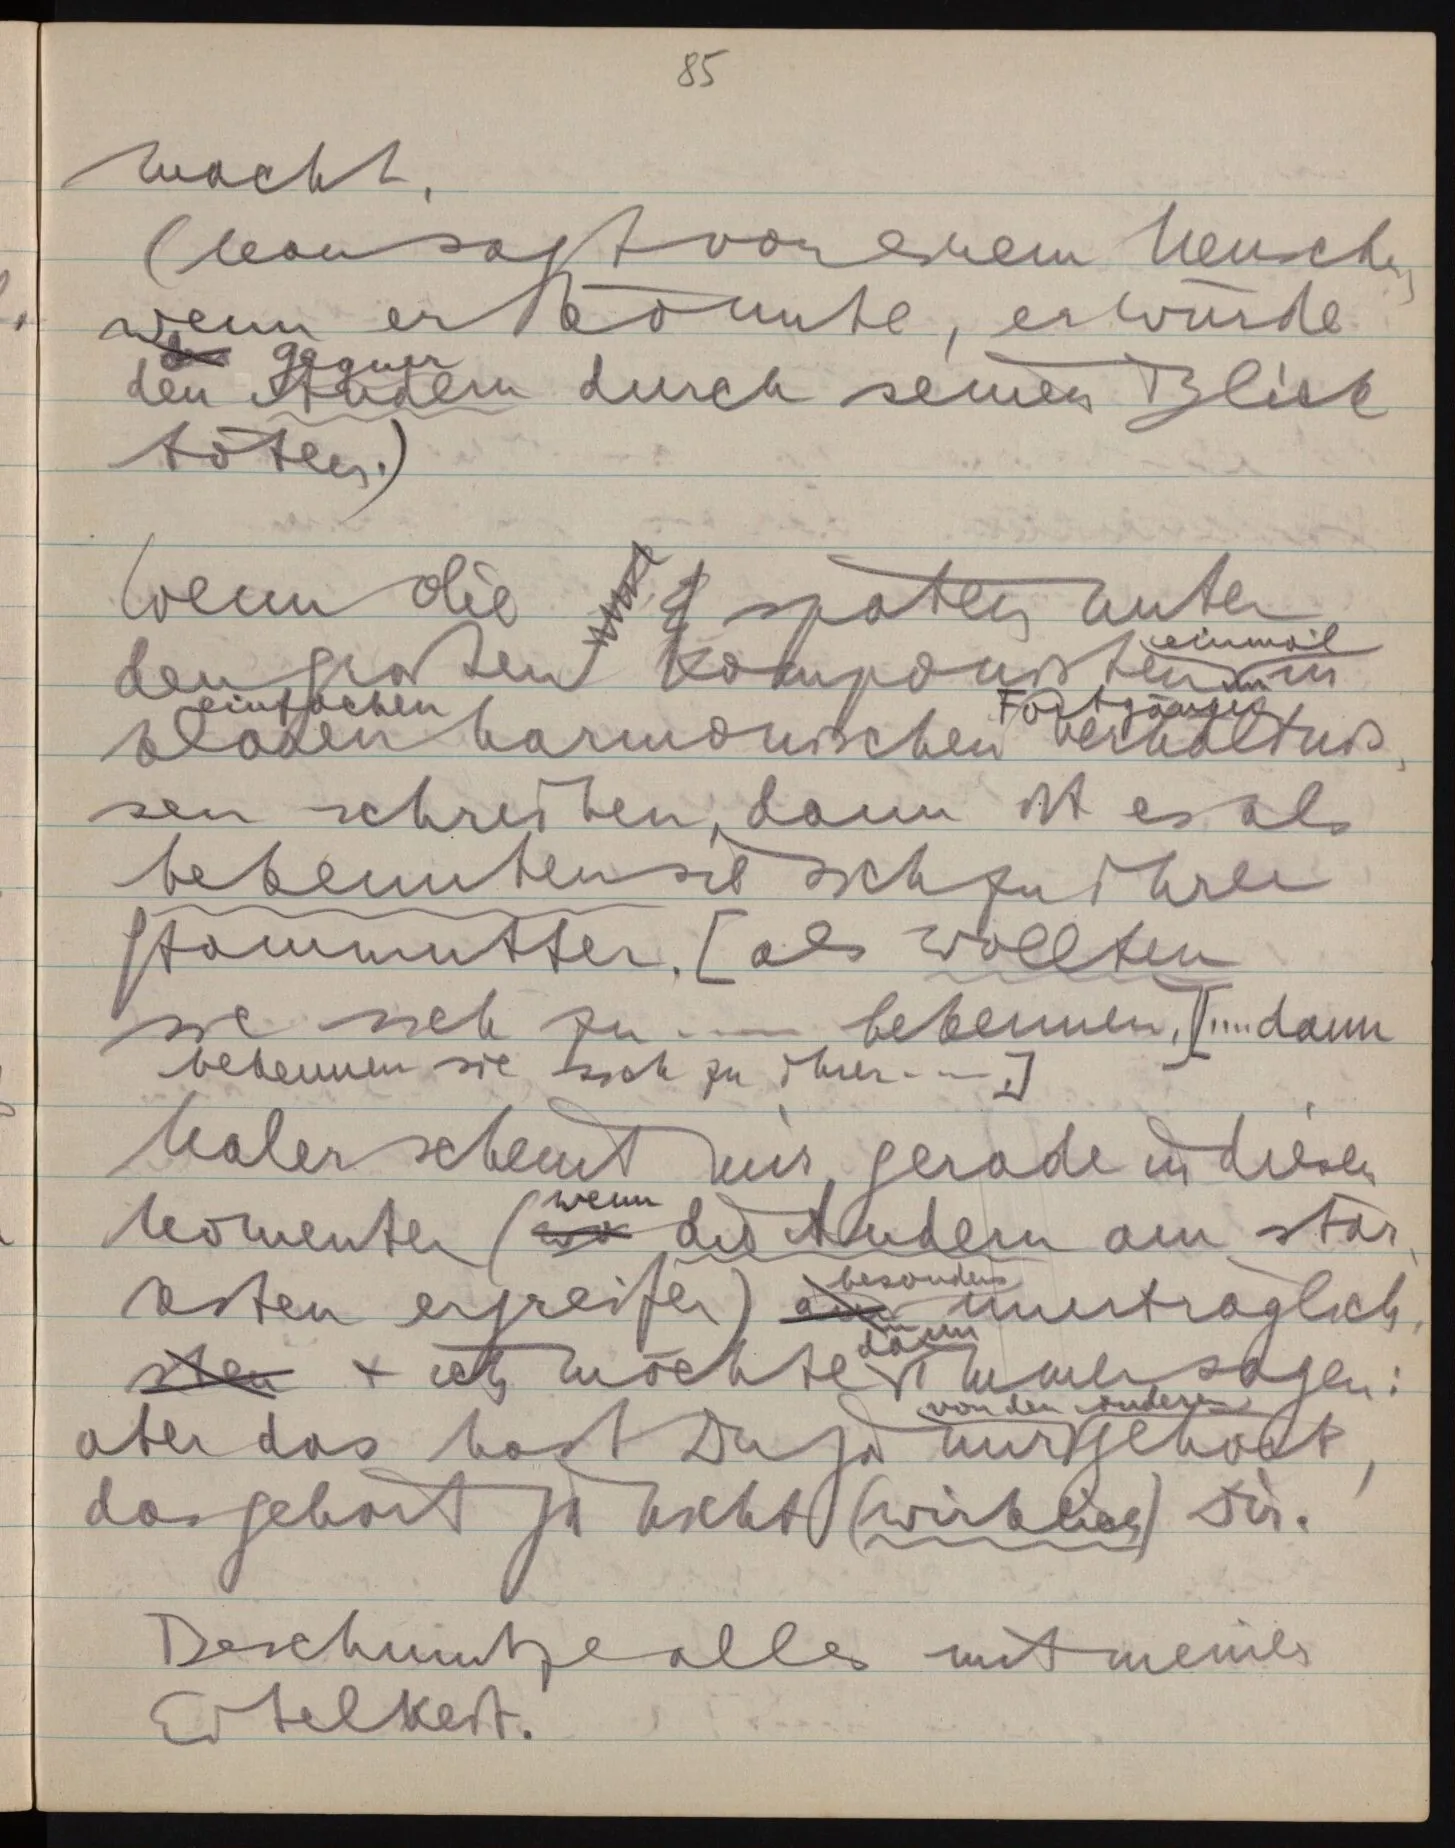 85
macht.
(Man sagt von einem Menschen
wenn er könnte, er würde
der Gegner
den Andern durch seinen Blick
töten.)
Wenn die späten unter
den großen Komponisten einmal in
einfachen Fortgängen
klaren harmonischen Verhältnis-
sen schreiben, dann ist es als
bekennten sie sich zu ihrer
Stammutter. [als wollten
sie sich zu ---- bekennen.] [.... dann
bekennen sie sich zu ihrer ----.]
Maler scheint mir gerade in diesen
wenn
Momenten (wo die Andern am stär-
besonders
ksten ergreifen) am unerträglich-
dann
sten + ich möchte immer sagen:
von den anderen
aber das hast Du ja nur gehört,
das gehört ja nicht (wirklich) Dir.
Beschmutze alles mit meiner
Eitelkeit.